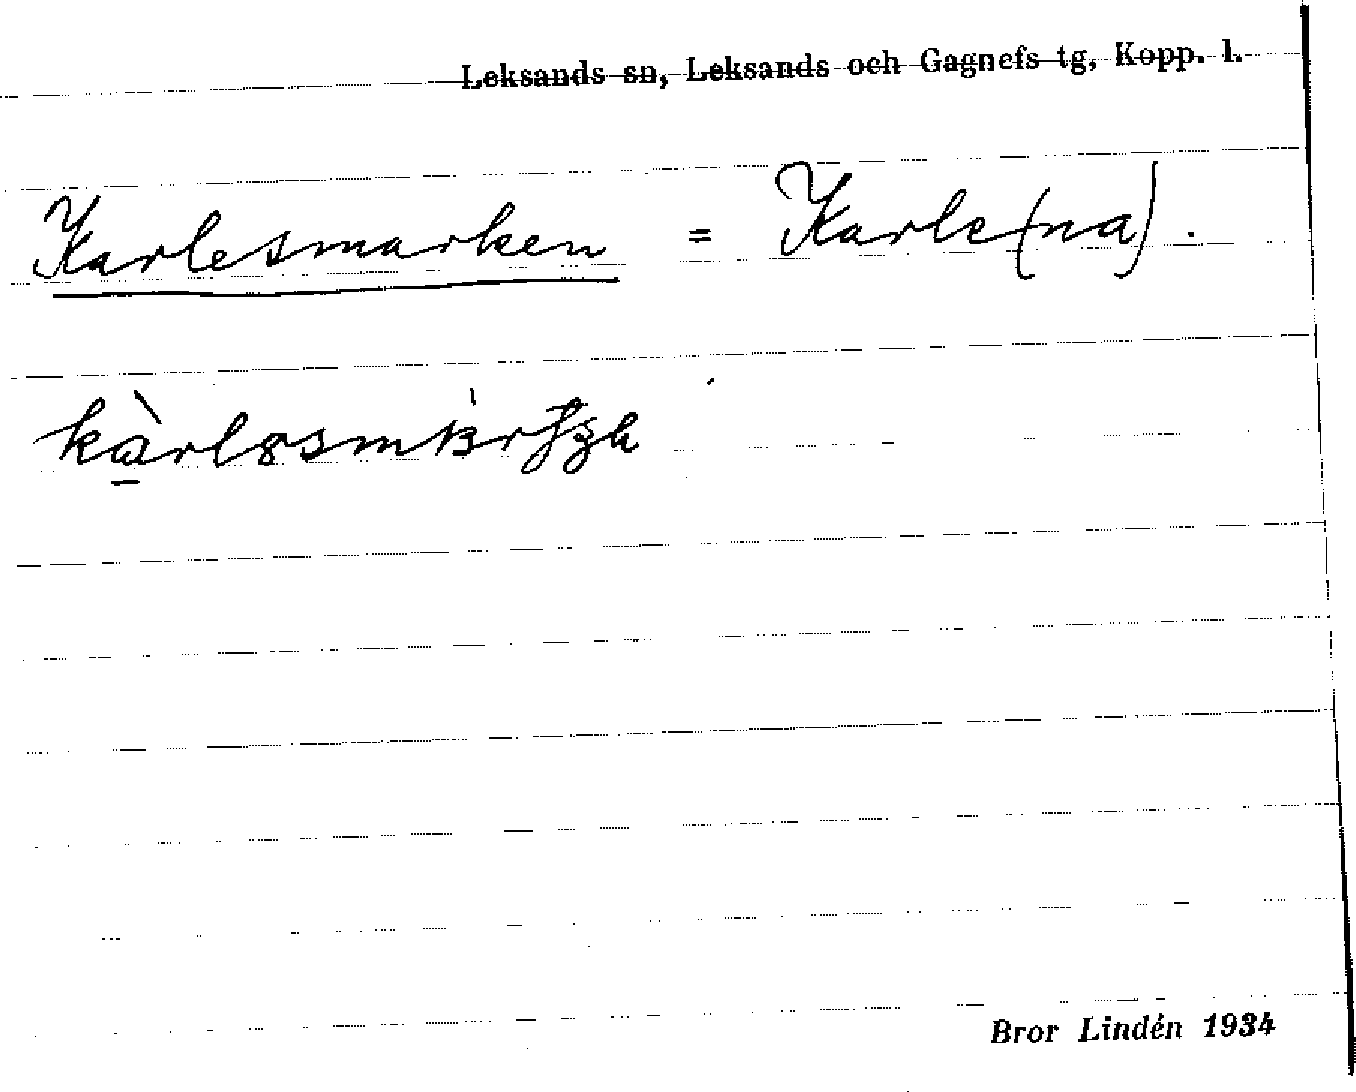 Leksands sn, Leksands och Gagnefs tg, Kopp. l.
Karlesmarken = Karle(na).
Bror Lindén 1934